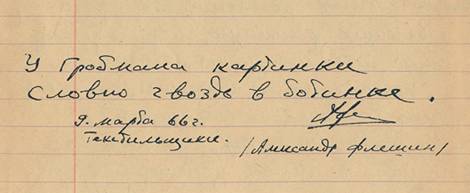 У Гробмана картинки
Словно гвоздь в ботинке.
9. марта 66 г.
Текстильщики.
/Александр Флешин/